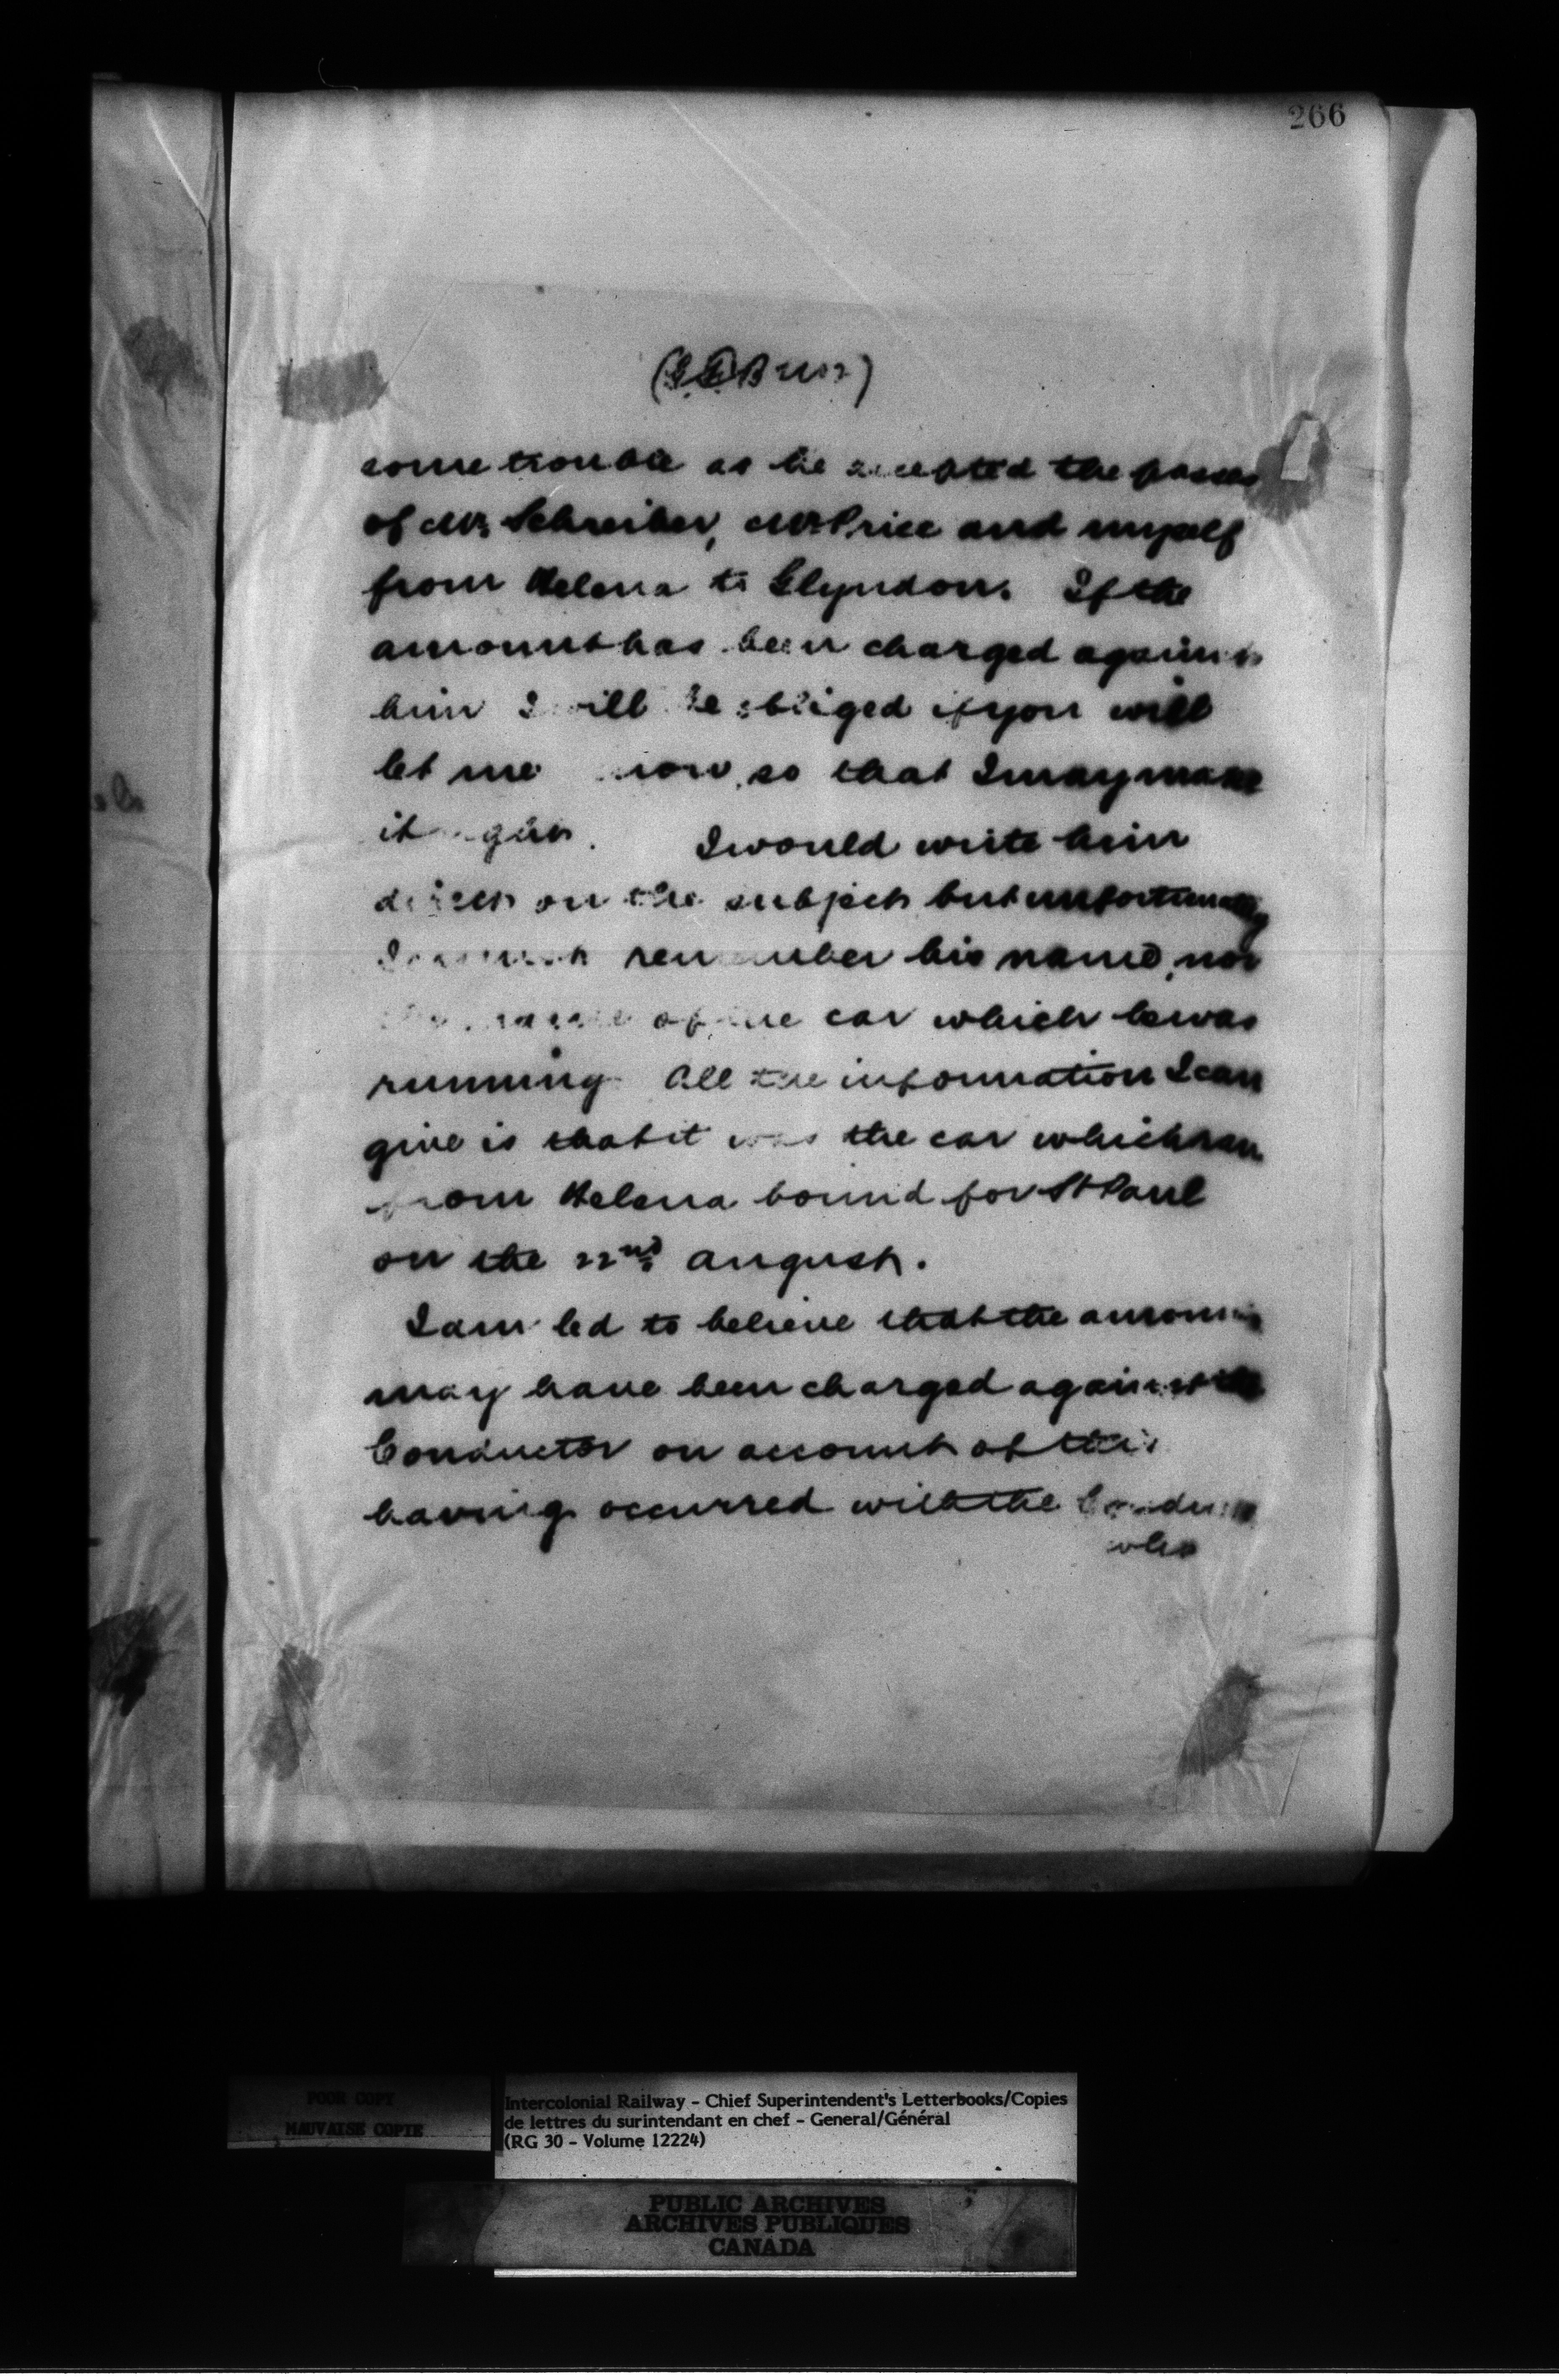 266
some trouble as he accepted the passes
of Mr. Schreiber, Mr Price and myself
from Helena to Glyndon. If the
amount has been charged against
him I will be obliged if you will
let me know, so that I may make
it good. I would write him
direct on the subject but unfortunately
I cannot remember his name, nor
the name of the car which he was
running. All the information I can
give is that it was the car which ran
from Helena bound for St Paul
on the 22nd August.
I am led to believe that the amount
may have been charged against the
Conductor on account of this
having occurred with the Conductor
who
POOR COPY
MAUVAISE COPIE
Intercolonial Railway - Chief Superintendent's Letterbooks/Copies
de lettres du surintendant en chef - General/Général
(RG 30 - Volume 12224)
PUBLIC ARCHIVES
ARCHIVES PUBLIQUES
CANADA